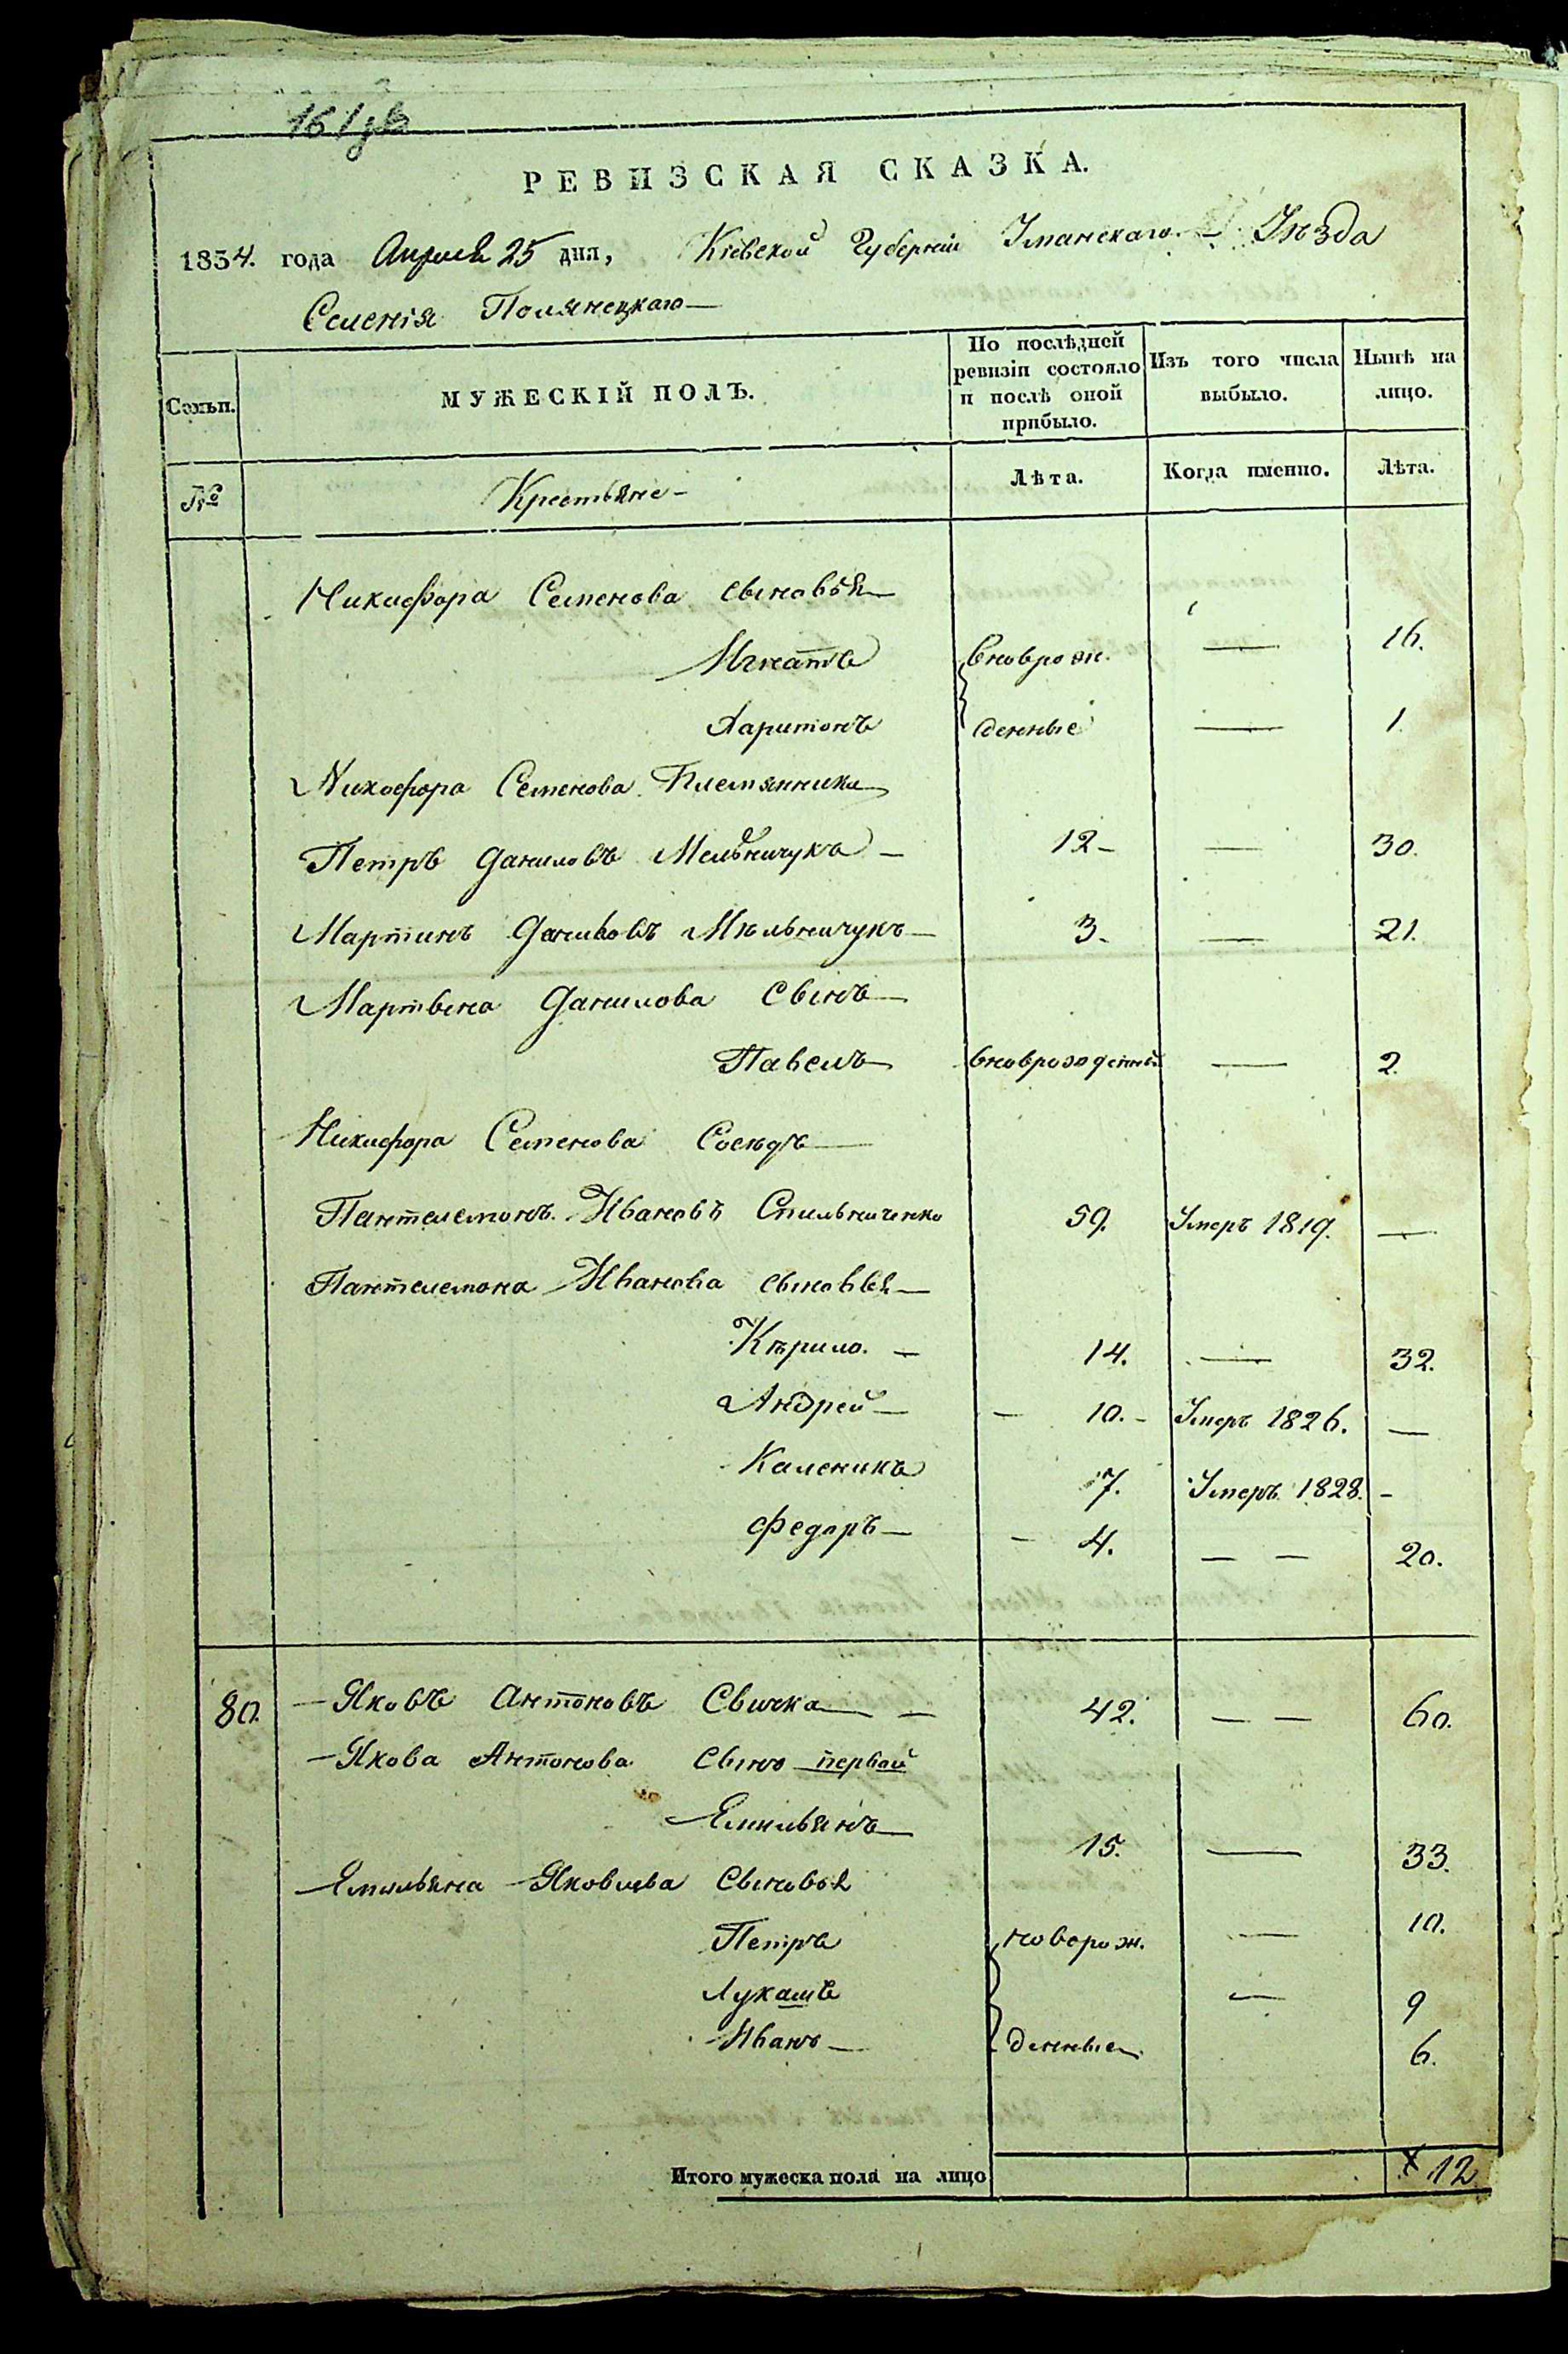 РЕВИЗСКАЯ СКАЗКА.
1834. года Апреля 25 дня, Кіевской Губерніи Уманскаго Уѣзда
Селенія Полянецкаго
Семьи. МУЖЕСКІЙ ПОЛЪ. По послѣдней ревизіи состояло и послѣ оной прибыло. Изъ того числа выбыло. Нынѣ на лицо.
№ Крестьяне Лѣта. Когда именно. Лѣта.
Никифора Семенова сыновья
Игнатъ вноврож. — 16.
Харитонъ денные — 1.
Никифора Семенова Племянники
Петръ Даниловъ Мельничукъ — 12 — — 30.
Мартинъ Даниловъ Мельничукъ — 3. — 21.
Мартина Данилова сынъ
Павелъ вноврожденный — 2.
Никифора Семенова Сосѣдъ
Пантелемонъ Ивановъ 59. Умеръ 1819. —
Пантелемона Иванова сыновья
Кѣрило. — 14. — 32.
Андрей — 10. — Умеръ 1826. —
Каленикъ 7. Умеръ 1828. —
Федоръ — 4. — — 20.
80. Яковъ Антоновъ Свичка — 42. — — 60.
Якова Антонова сынъ первой
Емильянъ 15. — 33.
Емильяна Яковлева сыновья
Петръ новорож. — 10.
Лукашъ — 9
Иванъ — денные 6.
Итого мужеска пола на лицо х 12